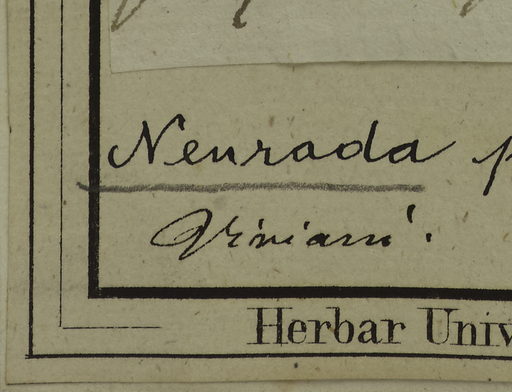 Neurada p
Viviani.
Herbar Univ